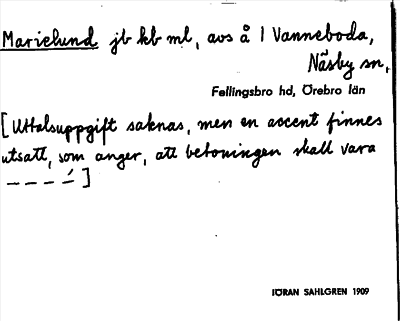 Marielund jb kb ml, avs å 1 Vanneboda,
Näsby sn,
Fellingsbro hd, Örebro län
[Uttalsuppgift saknas, men en accent finnes
utsatt, som anger, att betoningen skall vara
_ _ _ _́ ]
IÖRAN SAHLGREN 1909